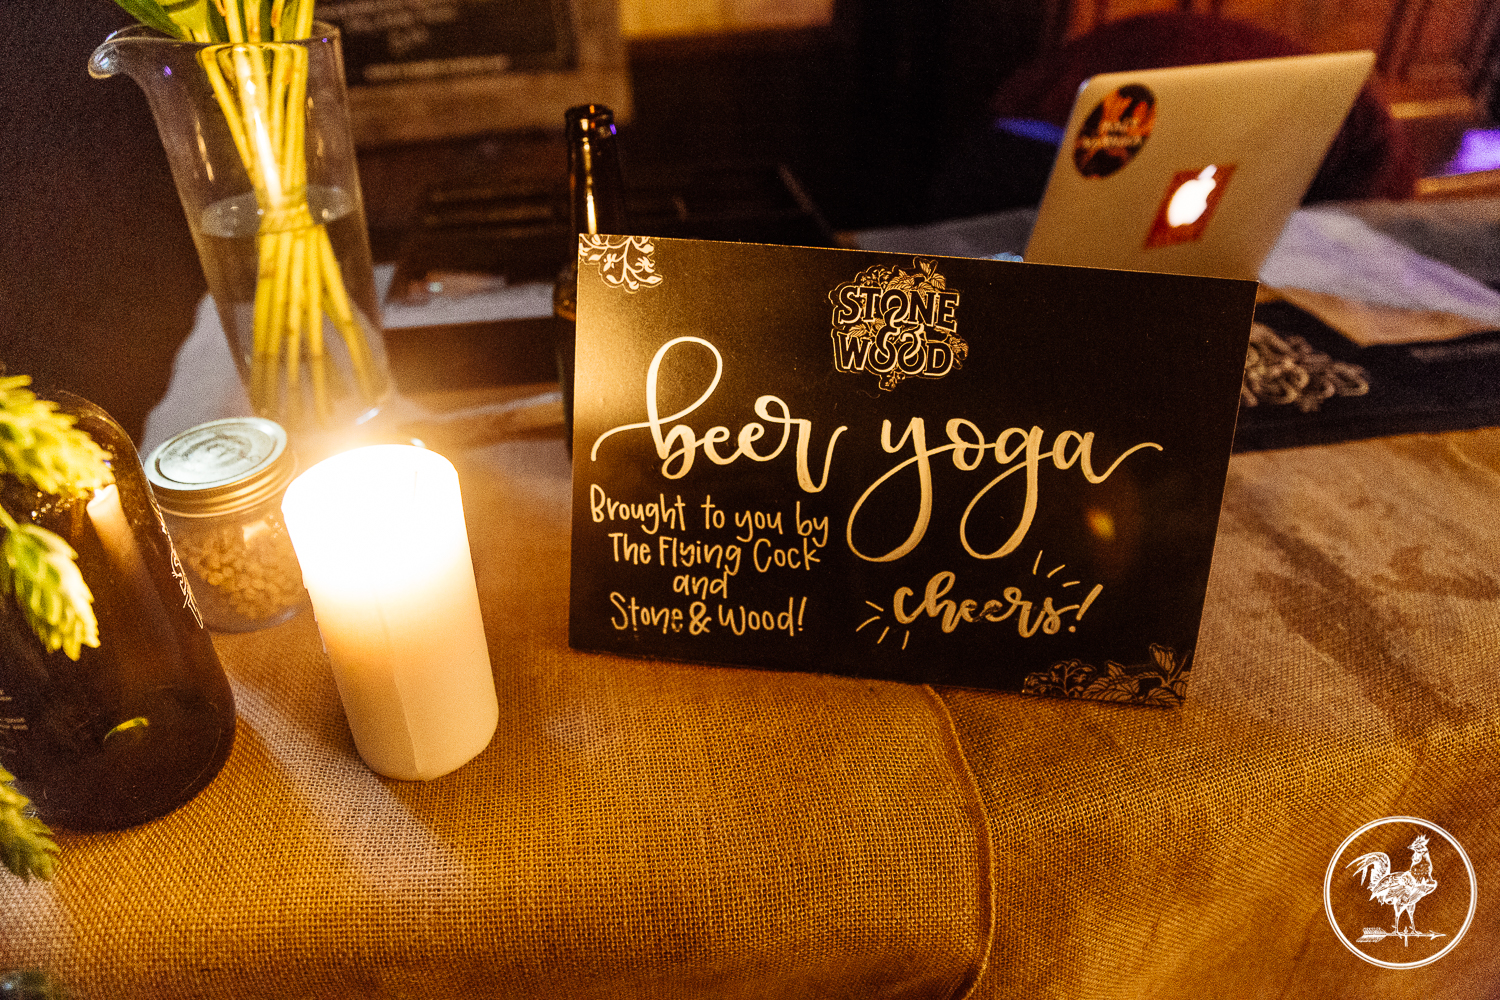 STONE
&
WOOD
beer yoga
Brought to you by
The Flying Cock
and
Stone & Wood!
cheers!